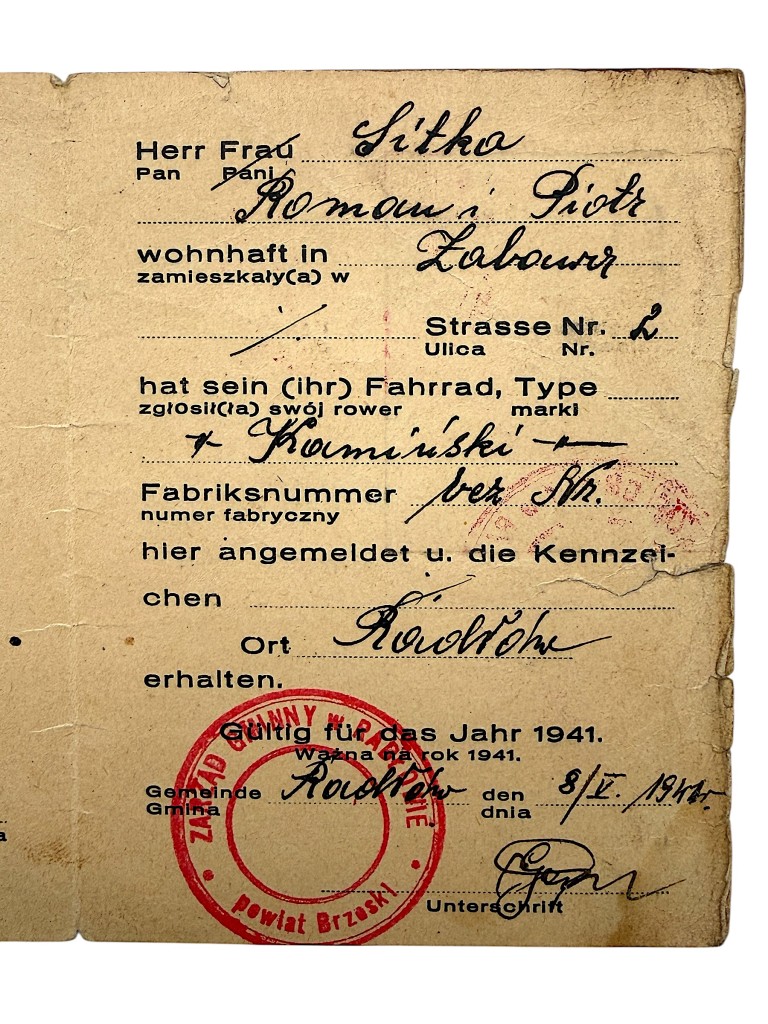 Herr Frau Sitko
Pan Pani
Roman i Piotr
wohnhaft in Zabawa
zamieszkały(a) w
Strasse Nr. 2
Ulica Nr.
hat sein (ihr) Fahrrad, Type
zgłosił(ła) swój rower marki
Kamiński
Fabriksnummer bez Nr.
numer fabryczny
hier angemeldet u. die Kennzei-
chen
Ort Radłów
erhalten.
Gültig für das Jahr 1941.
Ważna na rok 1941.
Gemeinde Radłów den 8/V. 1941r.
Gmina dnia
Unterschrift
ZARZĄD GMINNY w RADŁOWIE
powiat Brzeski
a